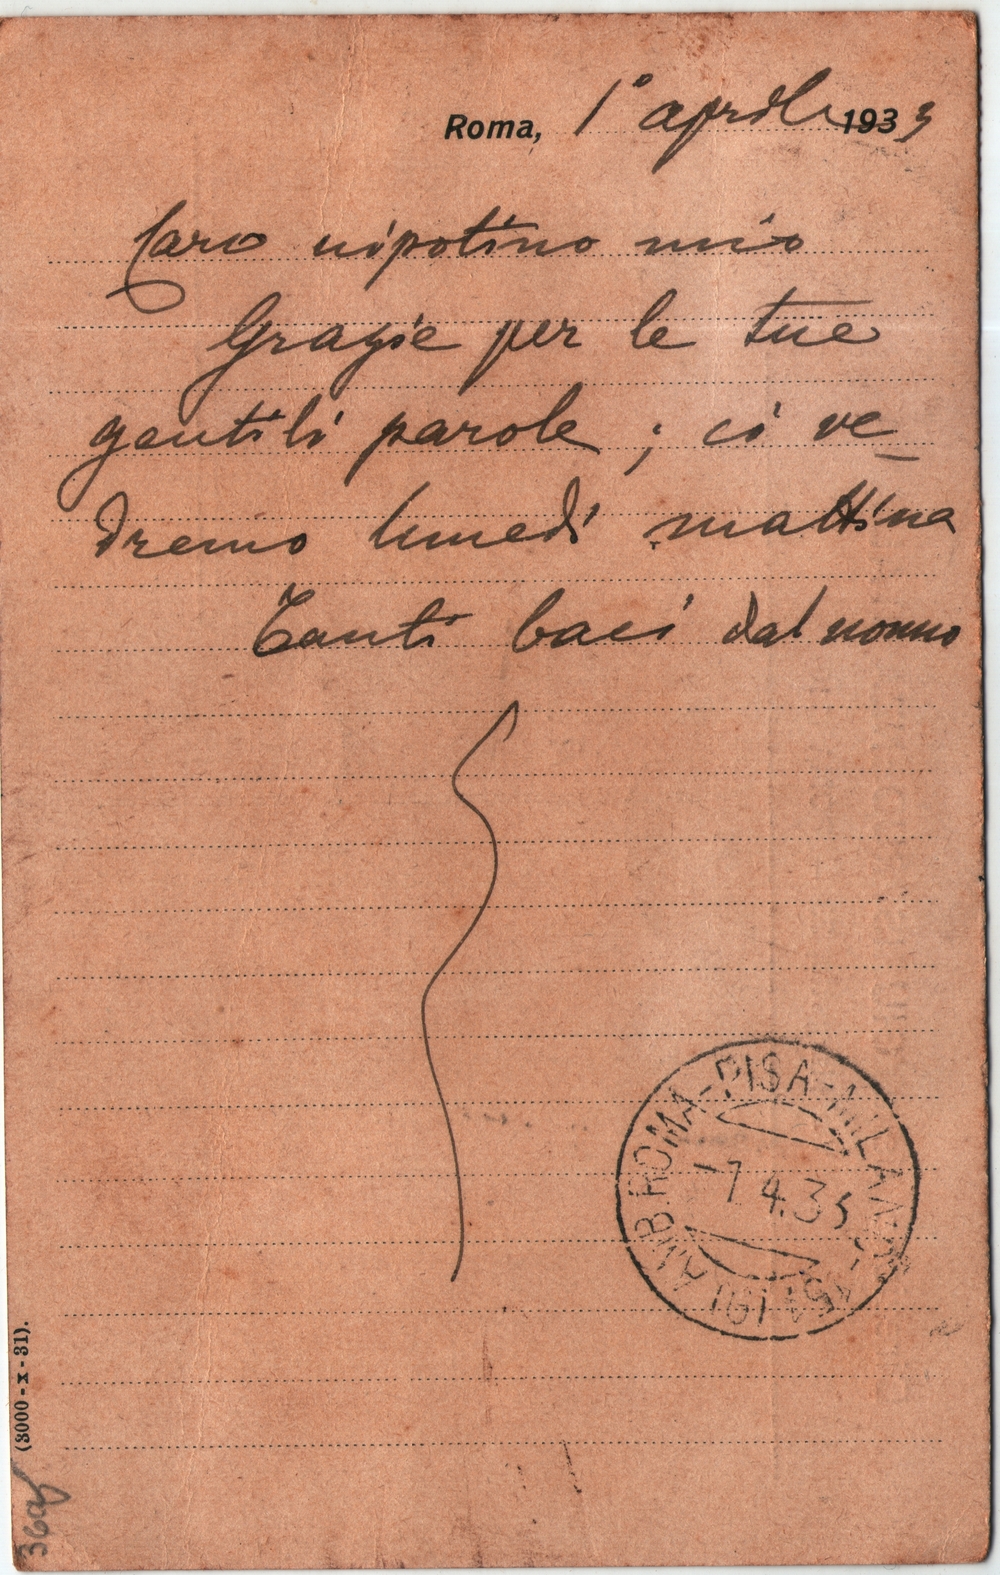 Roma, 1° aprile 1933
Caro nipotino mio
Grazie per le tue
gentili parole; ci ve_
dremo lunedì mattina
Tanti baci dal nonno
AMB. ROMA-PISA-MILANO
-1 4.33
(3000 - x - 31).